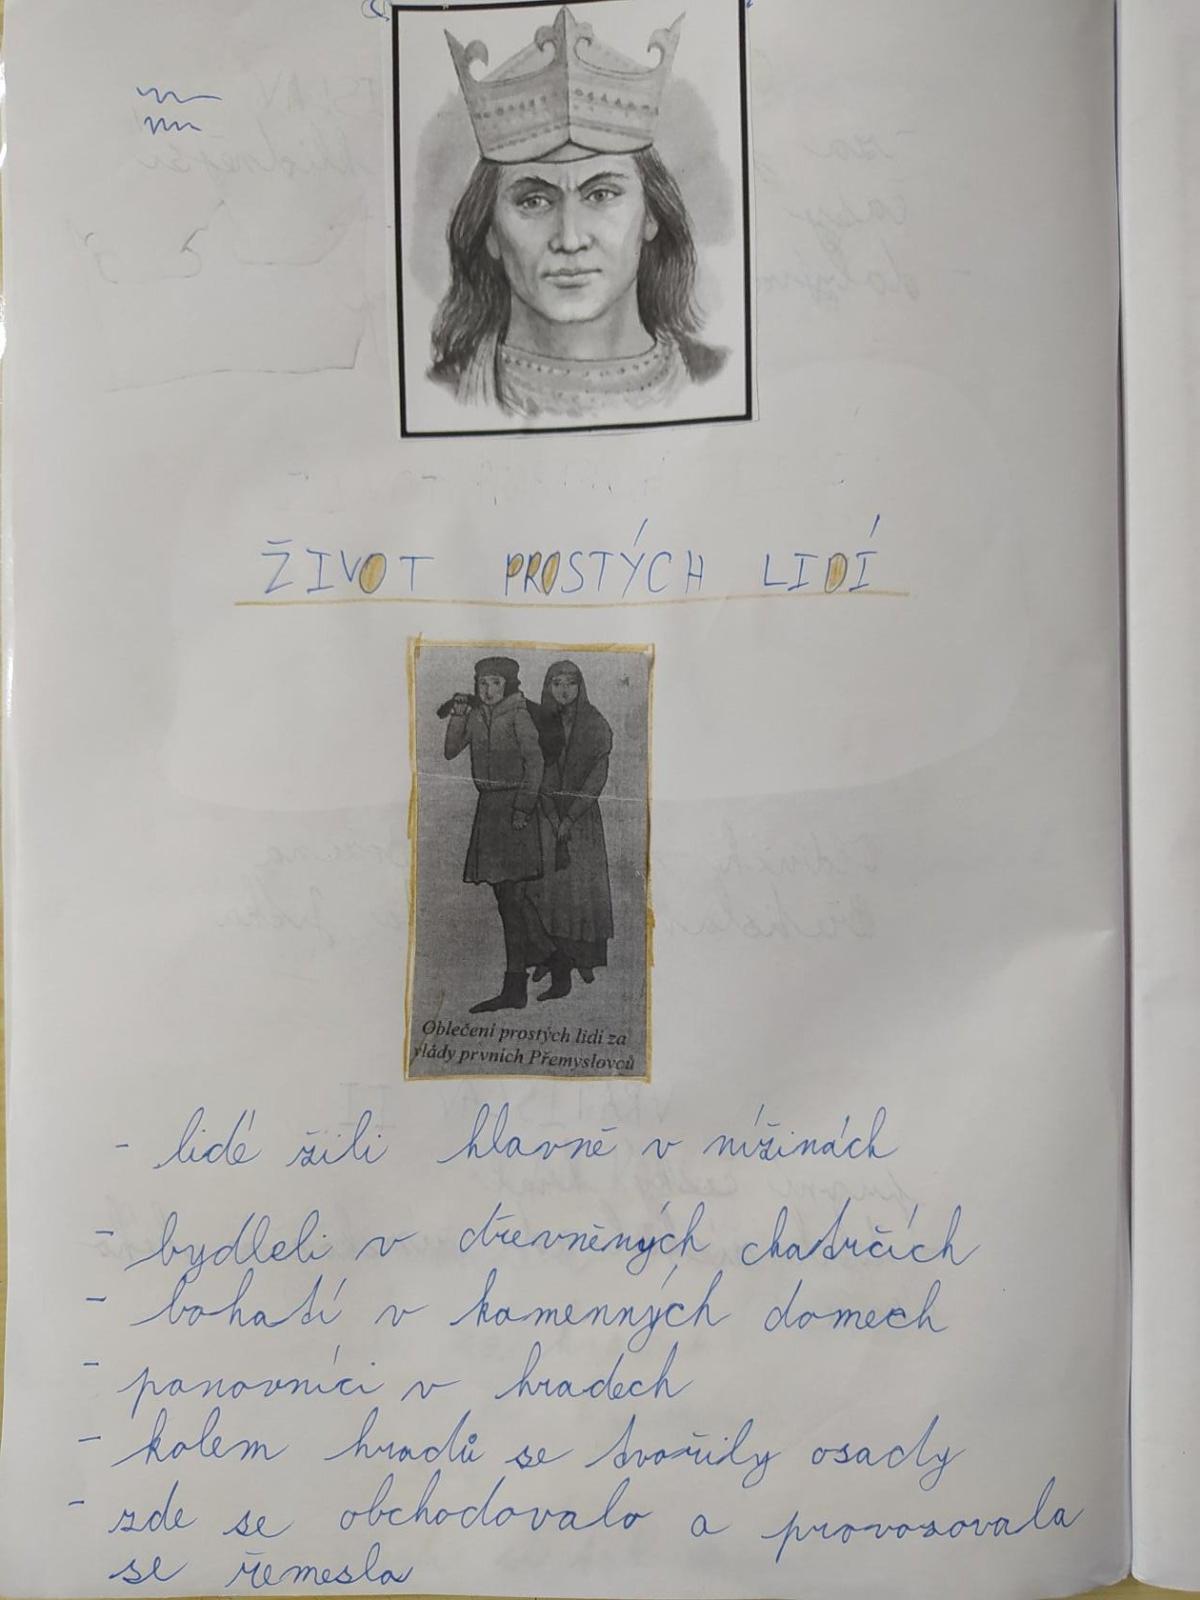 ŽIVOT PROSTÝCH LIDÍ
Oblečení prostých lidí za
vlády prvních Přemyslovců
- lidé žili hlavně v nížinách
- bydleli v dřevněných chatrčích
- bohatí v kamenných domech
- panovníci v hradech
- kolem hradů se tvořily osady
- zde se obchodovalo a provozovala
se řemesla